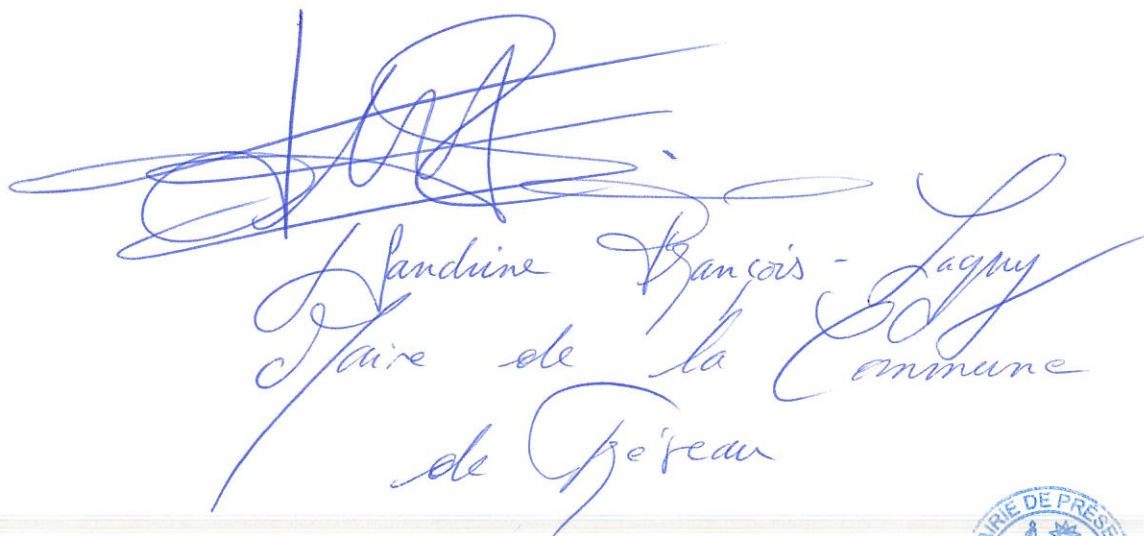 Sandrine François-Lagny
Maire de la Commune
de Préseau
MAIRIE DE PRÉSE